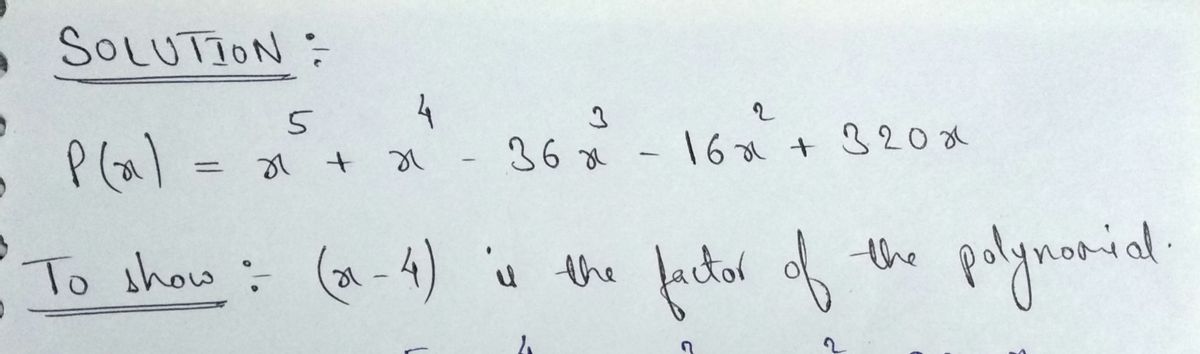 SOLUTION :-
P(x) = x⁵ + x⁴ - 36x³ - 16x² + 320x
To show :- (x-4) is the factor of the polynomial.